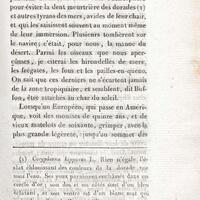 pour éviter la dent meurtrière des dorades (1)
et autres tyrans des mers, avides de leur chair,
et qui les saisissent souvent au moment même
de leur immersion. Plusieurs tombèrent sur
le navire; c'était, pour nous, la manne du
désert. Parmi les oiseaux que nous aper-
çûmes, je citerai les hirondelles de mer,
les frégates, les fous et les pailles-en-queue.
On sait que ces derniers ne s'écartent jamais
de la zone tropiquaire, et semblent, dit Buf-
fon, être attachés au char du soleil.
Lorsqu'un Européen, qui passe en Amé-
rique, voit des mousses de quinze ans, et de
vieux matelots de soixante, grimper avec la
plus grande légèreté, jusqu'au sommet des
(1) Coryphæna hippurus L. Rien n'égale l'é-
clat éblouissant des couleurs de la dorade vue
sous l'eau. Ses yeux paraissent enchâssés dans un
cercle d'or; son dos et ses côtés sont d'un bleu
éclatant, et son ventre est d'un blanc mat qui